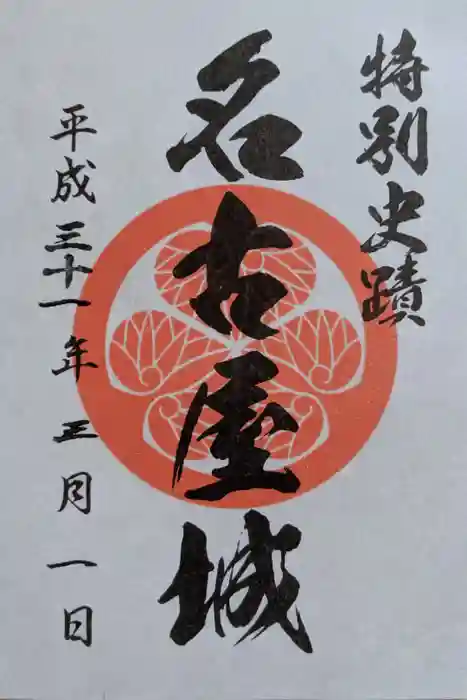 特別史蹟
名古屋城
平成三十一年正月一日